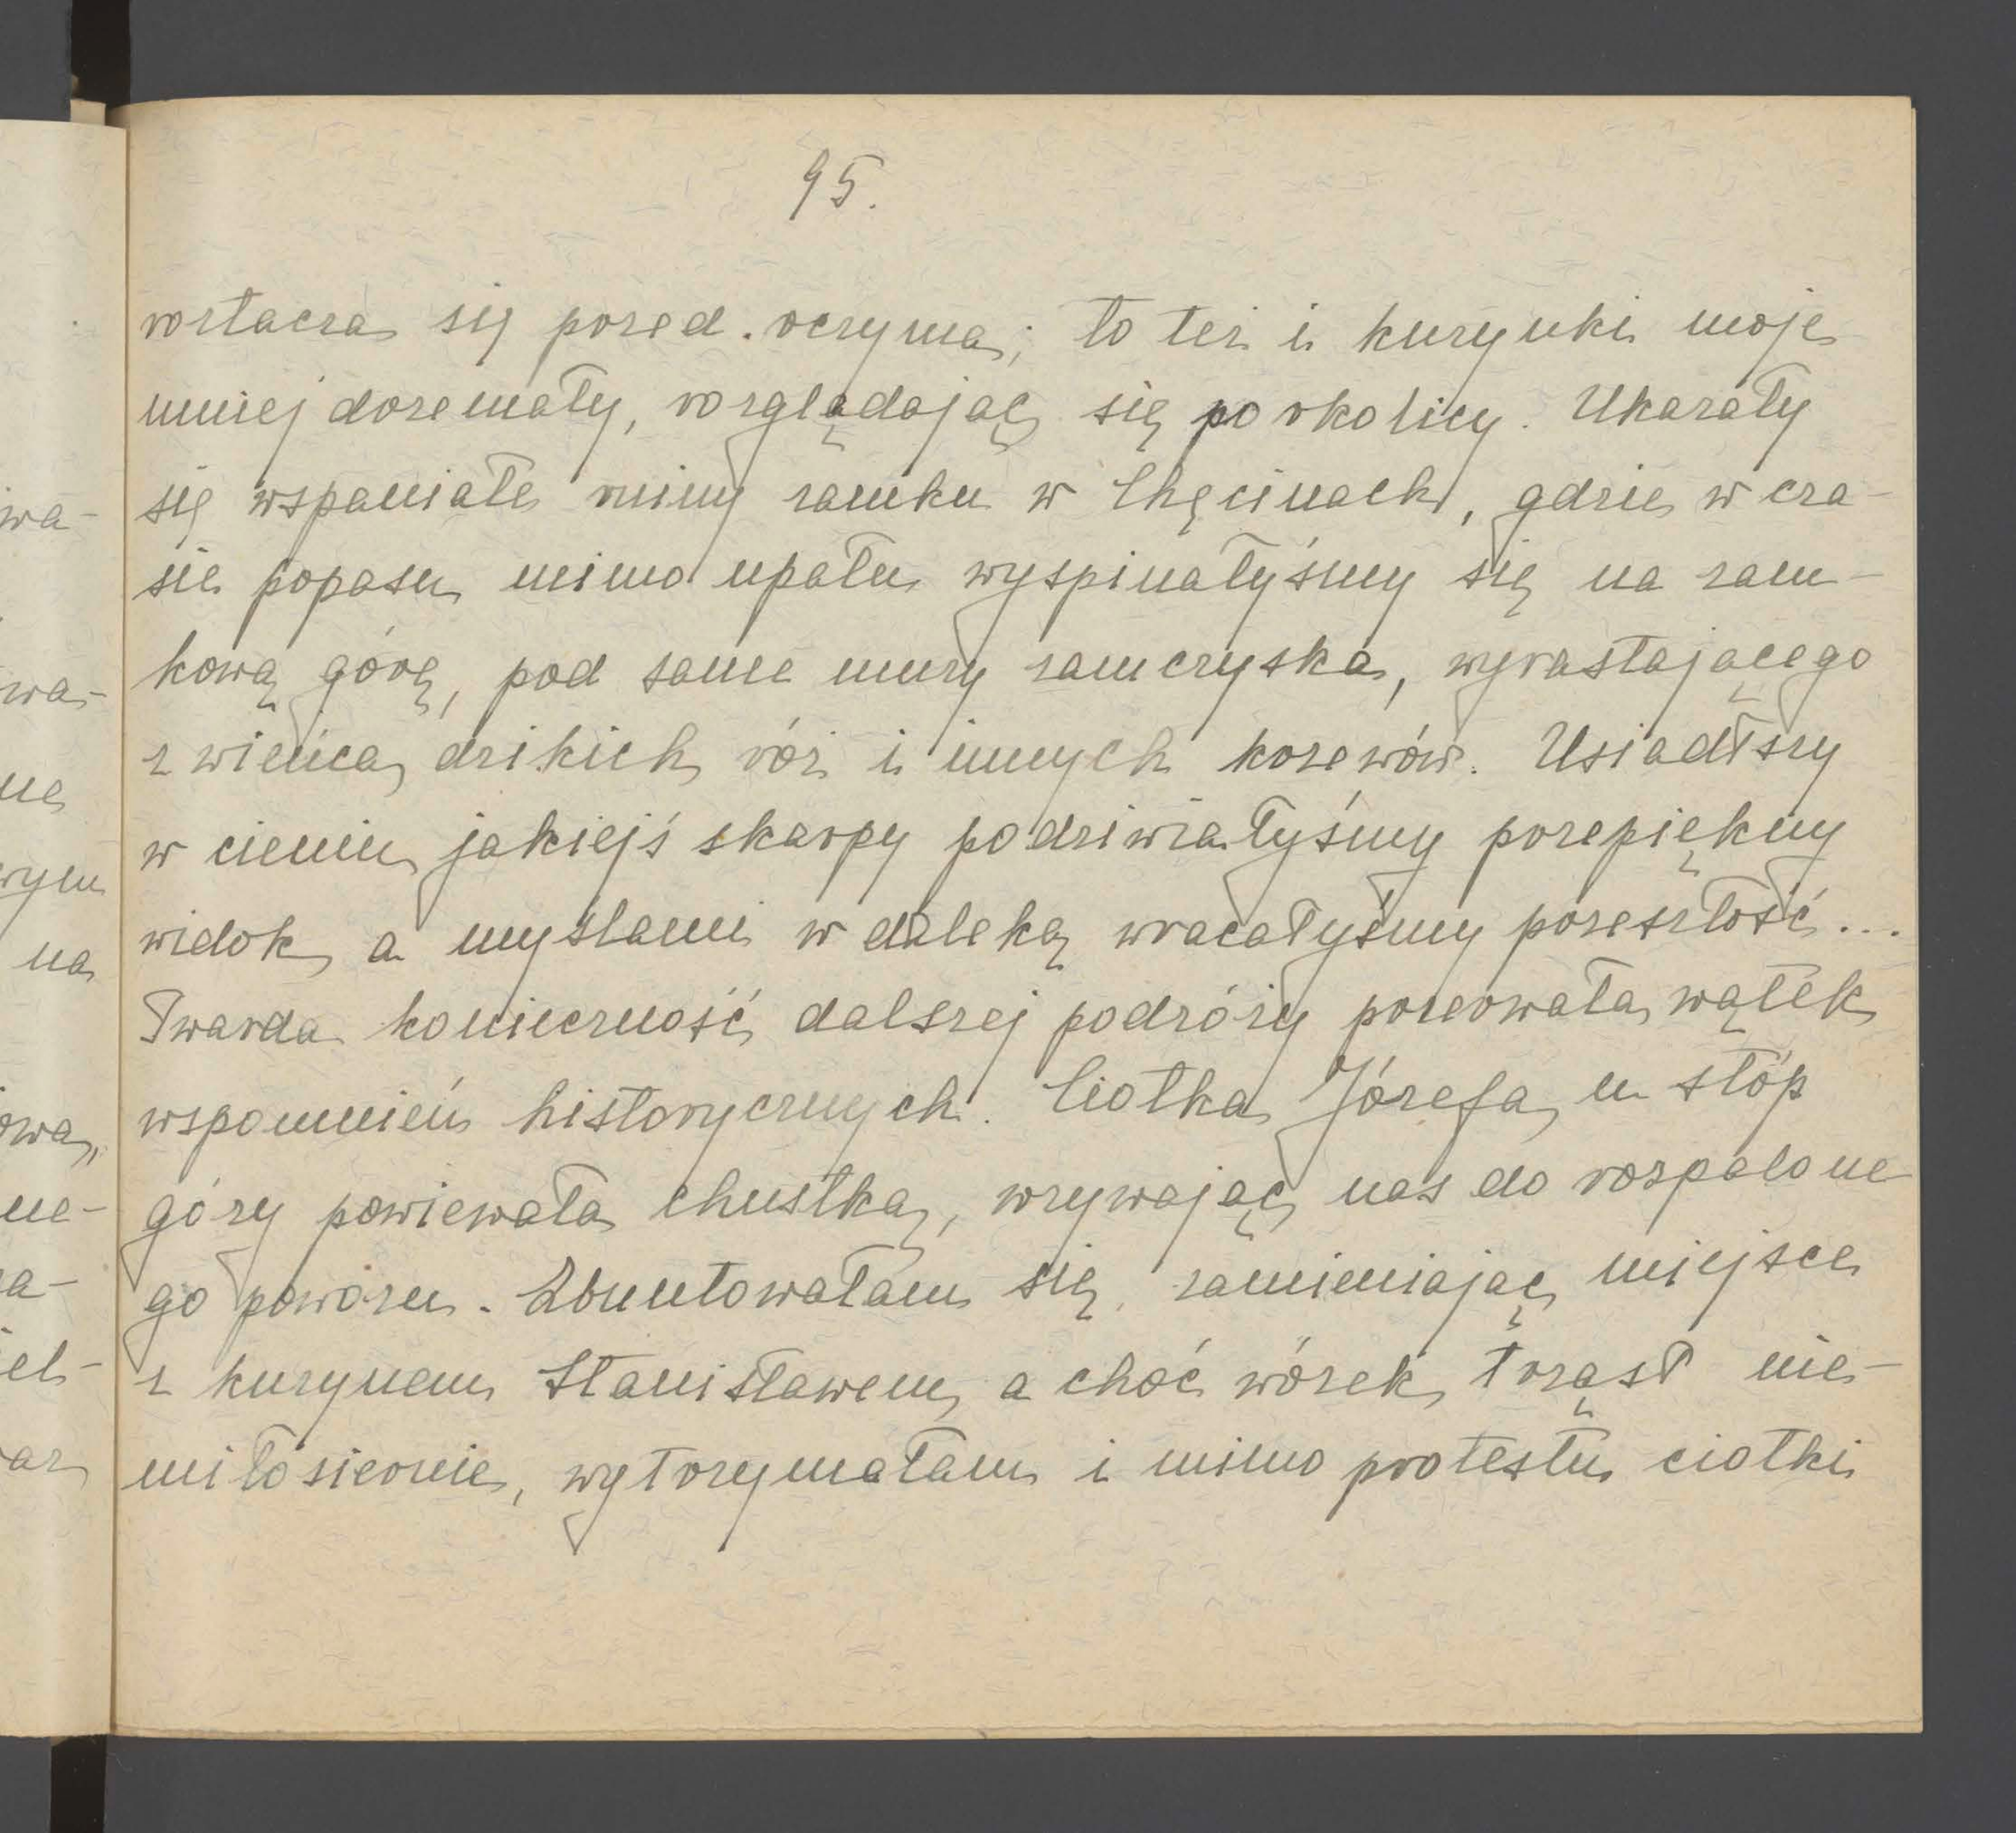 95.
roztacza się przed oczyma; to też i kuzynki moje
mniej drzemały, rozglądając się po okolicy. Ukazały
się wspaniałe ruiny zamku w Chęcinach, gdzie w cza-
sie popasu mimo upału wyspinałyśmy się na zam-
kową górę, pod same mury zamczyska, wyrastającego
z wieńca dzikich róż i innych krzewów. Usiadłszy
w cieniu jakiejś skarpy podziwiałyśmy przepiękny
widok, a myślami w daleką wracałyśmy przeszłość...
Twarda konieczność dalszej podróży przerwała wątek
wspomnień historycznych. Ciotka Józefa u stóp
góry powiewała chustką, wzywając nas do rozpalone-
go powozu. Zbuntowałam się, zamieniając miejsce
z kuzynem Stanisławem, a choć wózek trząsł nie-
miłosiernie, wytrzymałam i mimo protestu ciotki
wa-
wa-
ne
wym
na
owa,
ne-
a-
iel-
arz